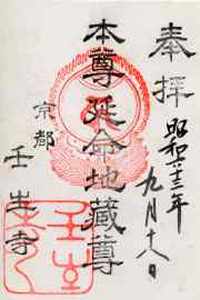 奉拝
昭和六十三年
九月十八日
本尊延命地蔵尊
京都
壬生寺